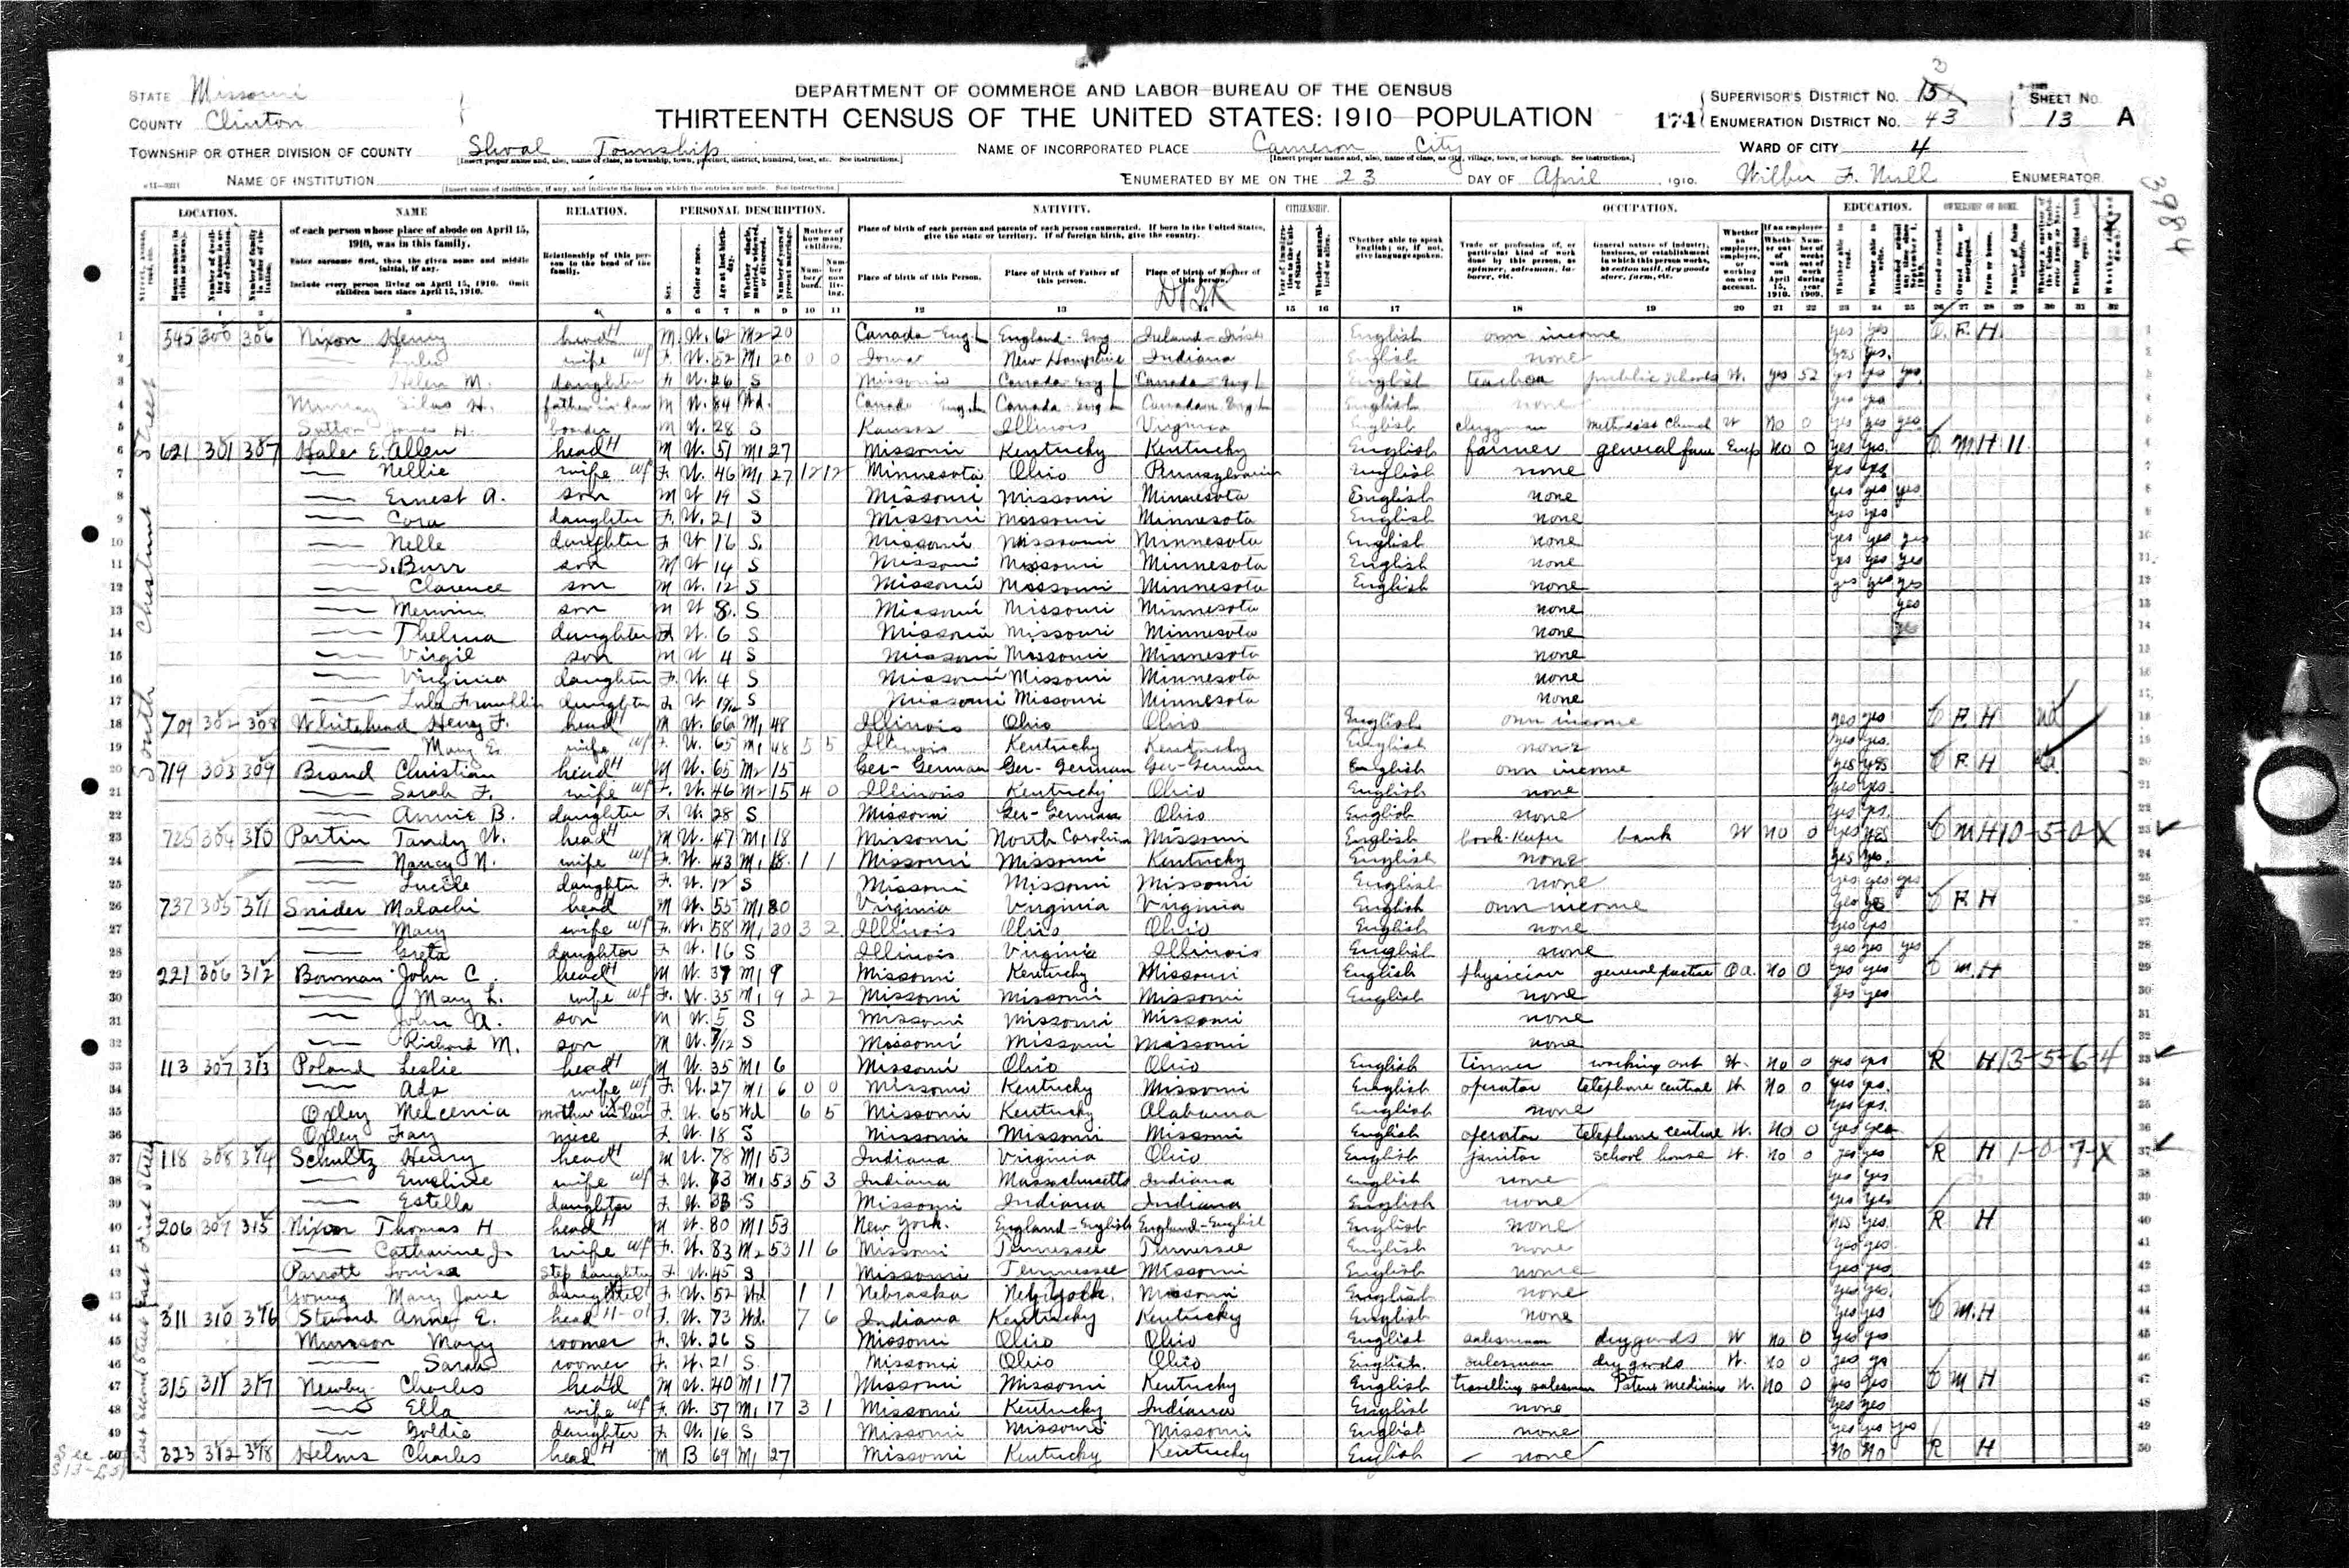 DEPARTMENT OF COMMERCE AND LABOR-BUREAU OF THE CENSUS
THIRTEENTH CENSUS OF THE UNITED STATES: 1910 POPULATION
STATE Missouri
COUNTY Clinton
TOWNSHIP OR OTHER DIVISION OF COUNTY Shoal Township
NAME OF INSTITUTION
NAME OF INCORPORATED PLACE Cameron City
ENUMERATED BY ME ON THE 23 DAY OF April, 1910. Wilber F. ENUMERATOR.
174 SUPERVISOR'S DISTRICT NO. 15 3
ENUMERATION DISTRICT NO. 43
SHEET NO. 13 A
WARD OF CITY 4
3984
LOCATION. NAME RELATION. PERSONAL DESCRIPTION. NATIVITY. CITIZENSHIP. OCCUPATION. EDUCATION. OWNERSHIP OF HOME.
of each person whose place of abode on April 15, 1910, was in this family.
Enter surname first, then the given name and middle initial, if any.
Include every person living on April 15, 1910. Omit children born since April 15, 1910.
Relationship of this person to the head of the family.
Place of birth of each person and parents of each person enumerated. If born in the United States, give the state or territory. If of foreign birth, give the country.
Place of birth of this Person. Place of birth of Father of this person. Place of birth of Mother of this person.
Whether able to speak English; or, if not, give language spoken.
South Chestnut Street
1 545 300 306 Nixon Henry head M W. 62 M2 20 Canada-Eng England-Eng Ireland-Irish English own income yes yes O F. H
2 wife F. W. 52 M1 20 0 0 Iowa New Hampshire Indiana English none yes yes
3 Helen M. daughter F. W. 26 S Missouri Canada-Eng Canada-Eng English teacher public schools W. yes 52 yes yes yes
4 Murray Silas H. father in law M W. 84 Wd. Canada Eng. Canada-Eng Canada Eng English none yes yes
5 Sutton James H. boarder M W. 28 S Kansas Illinois Virginia English clergyman Methodist Church W No 0 yes yes yes
6 621 301 307 Hales E. Allen head M W. 51 M1 27 Missouri Kentucky Kentucky English farmer general farm Emp No 0 yes yes O M H 11
7 Nellie wife F. W. 46 M1 27 12 12 Minnesota Ohio Pennsylvania English none yes yes
8 Ernest A. son M W 19 S Missouri Missouri Minnesota English none yes yes yes
9 Cora daughter F. W. 21 S Missouri Missouri Minnesota English none yes yes
10 Nelle daughter F. W 16 S. Missouri Missouri Minnesota English none yes yes yes
11 S. Burr son M W 14 S Missouri Missouri Minnesota English none yes yes yes
12 Clarence son M W. 12 S Missouri Missouri Minnesota English none yes yes yes
13 son M W 8. S Missouri Missouri Minnesota none yes
14 Thelma daughter F W. 6 S Missouri Missouri Minnesota none yes
15 Virgil son M W 4 S Missouri Missouri Minnesota none
16 Virginia daughter F. W. 4 S Missouri Missouri Minnesota none
17 Lula Franklin daughter F. W S Missouri Missouri Minnesota none
18 709 302 308 Whitehead Henry F. head M W. 66 M1 48 Illinois Ohio Ohio English own income yes yes O F. H
19 Mary E. wife F. W. 65 M1 48 5 5 Illinois Kentucky Kentucky English none yes yes
20 719 303 309 Brand Christian head M W. 65 M2 15 Ger-German Ger-German Ger-German English own income yes yes O F. H
21 Sarah F. wife F. W. 46 M2 15 4 0 Illinois Kentucky Ohio English none yes yes
22 Annie B. daughter F. W. 28 S Missouri Ger-German Ohio English none yes yes
23 725 304 310 Partin Tandy W. head M W. 47 M1 18 Missouri North Carolina Missouri English book-keeper bank W No 0 yes yes O M H 10-5-0-X
24 Nancy N. wife F. W. 43 M1 18 1 1 Missouri Missouri Kentucky English none yes yes
25 Lucile daughter F. W. 12 S Missouri Missouri Missouri English none yes yes yes
26 737 305 311 Snider Malachi head M W. 55 M1 30 Virginia Virginia Virginia English own income yes yes O F. H
27 Mary wife F. W. 58 M1 30 3 2 Illinois Ohio Ohio English none yes yes
28 Greta daughter F. W. 16 S Illinois Virginia Illinois English none yes yes yes
29 221 306 312 Bowman John C. head M W. 37 M1 9 Missouri Kentucky Missouri English physician general practice Oa. No 0 yes yes O M. H
30 Mary L. wife F. W. 35 M1 9 2 2 Missouri Missouri Missouri English none yes yes
31 John A. son M W. 5 S Missouri Missouri Missouri none
32 Richard M. son M W. 7/12 S Missouri Missouri Missouri none
33 113 307 313 Poland Leslie head M W. 35 M1 6 Missouri Ohio Ohio English tinner working out W. No 0 yes yes R H 13-5-6-4
34 Ada wife F. W. 27 M1 6 0 0 Missouri Kentucky Missouri English operator telephone central W. No 0 yes yes
35 Oxley Melcenia mother in law F. W. 65 Wd 6 5 Missouri Kentucky Alabama English none yes yes
36 Oxley Fay niece F. W. 18 S Missouri Missouri Missouri English operator telephone central W. No 0 yes yes
East First Street
37 118 308 314 Schultz Henry head M W. 78 M1 53 Indiana Virginia Ohio English janitor school house W. No 0 yes yes R H 1-0-7-X
38 Emeline wife F. W. 73 M1 53 5 3 Indiana Massachusetts Indiana English none yes yes
39 Estella daughter F. W. 33 S Missouri Indiana Indiana English none yes yes
40 206 309 315 Nixon Thomas H head M W. 80 M1 53 New York. England-English England-English English none yes yes R H
41 Catharine J. wife F. W. 83 M2 53 11 6 Missouri Tennessee Tennessee English none yes yes
42 Parrott Louisa step daughter F. W. 45 S Missouri Tennessee Missouri English none yes yes
43 Young Mary Jane daughter F. W. 52 Wd 1 1 Nebraska New York. Missouri English none yes yes
East Second Street
44 311 310 316 Steward Anne E. head F. W. 73 Wd. 7 6 Indiana Kentucky Kentucky English none yes yes O M. H
45 Munson Mary roomer F. W. 26 S Missouri Ohio Ohio English saleswoman dry goods W No 0 yes yes
46 Sarah roomer F. W. 21 S Missouri Ohio Ohio English. saleswoman dry goods W. No 0 yes
47 315 311 317 Newby Charles head M W. 40 M1 17 Missouri Missouri Kentucky English travelling salesman Patent Medicine W. No 0 yes yes O M H
48 Ella wife F. W. 37 M1 17 3 1 Missouri Kentucky Indiana English none yes yes
49 Goldie daughter F. W. 16 S Missouri Missouri Missouri English none yes yes yes
50 323 312 318 Helms Charles head M B 69 M1 27 Missouri Kentucky Kentucky English none No No R H
104